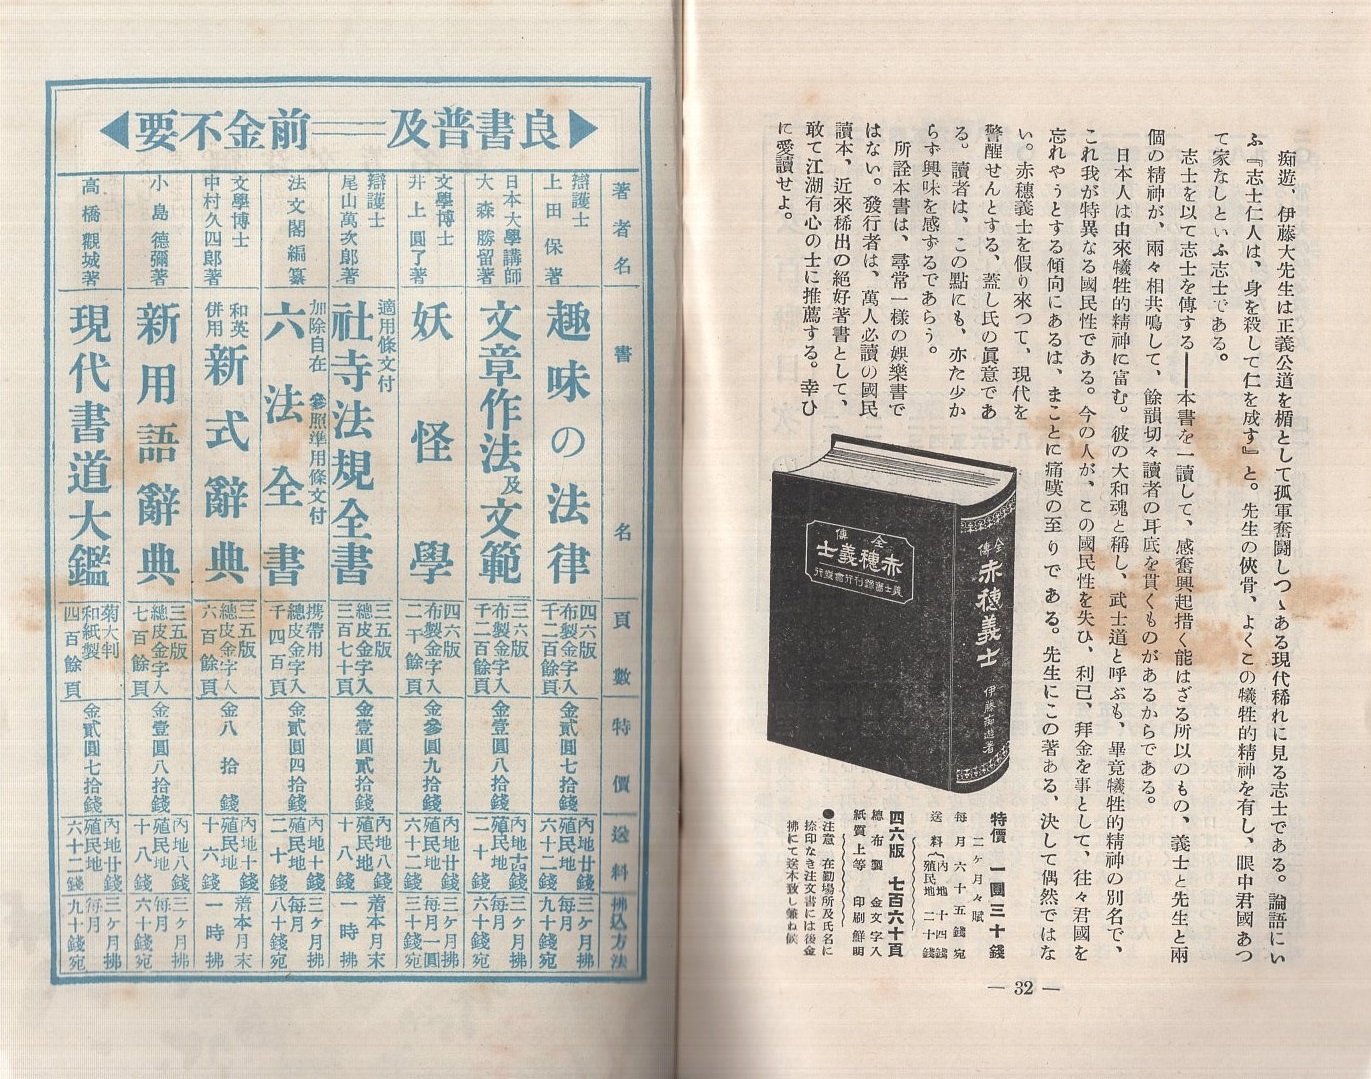 痴遊、伊藤大先生は正義公道を楯として孤軍奮鬪しつゝある現代稀れに見る志士である。論語にい
ふ『志士仁人は、身を殺して仁を成す』と。先生の俠骨、よくこの犧牲的精神を有し、眼中君國あつ
て家なしといふ志士である。
志士を以て志士を傳する――本書を一讀して、感奮興起措く能はざる所以のもの、義士と先生と兩
個の精神が、兩々相共鳴して、餘韻切々讀者の耳底を貫くものがあるからである。
日本人は由來犧牲的精神に富む。彼の大和魂と稱し、武士道と呼ぶも、畢竟犧牲的精神の別名で、
これ我が特異なる國民性である。今の人が、この國民性を失ひ、利己、拜金を事として、往々君國を
忘れやうとする傾向にあるは、まことに痛嘆の至りである。先生にこの著ある、決して偶然ではな
い。赤穗義士を假り來つて、現代を
警醒せんとする、蓋し氏の眞意であ
る。讀者は、この點にも、亦た少か
らず興味を感ずるであらう。
所詮本書は、尋常一樣の娯樂書で
はない。發行者は、萬人必讀の國民
讀本、近來稀出の絶好著書として、
敢て江湖有心の士に推薦する。幸ひ
に愛讀せよ。
全傳
赤穗義士
義士書錄刊行會發行
全傳 赤穗義士 伊藤痴遊著
特價 一圓三十錢
二ヶ月々賦
每月六十五錢宛
送料 內地 十四錢
殖民地 二十錢
四六版 七百六十頁
總布製 金文字入
紙質上等 印刷鮮明
●注意 在勤場所及氏名に
捺印なき注文書には後金
拂にて送本致し兼ね候
― 32 ―
良書普及――前金不要
著者名
書名
頁數
特價
送料
拂込方法
辯護士
上田保著
趣味の法律
四六版
布製金字入
千二百餘頁
金貳圓七拾錢
內地廿錢
殖民地
六十二錢
三ヶ月拂
每月
九十錢宛
日本大學講師
大森勝留著
文章作法及文範
三六版
布製金字入
千二百餘頁
金壹圓八拾錢
內地十四錢
殖民地
二十錢
三ヶ月拂
每月
六十錢宛
文學博士
井上圓了著
妖怪學
四六版
布製金字入
二千餘頁
金參圓九拾錢
內地廿錢
殖民地
六十二錢
三ヶ月拂
每月一圓
三十錢宛
辯護士
尾山萬次郎著
適用條文付
社寺法規全書
三五版
總皮金字入
三百七十頁
金壹圓貳拾錢
內地八錢
殖民地
十八錢
着本月末
一時拂
法文閣編纂
加除自在 參照準用條文付
六法全書
携帶用
總皮金字入
千四百頁
金貳圓四拾錢
內地十錢
殖民地
二十錢
三ヶ月拂
每月
八十錢宛
文學博士
中村久四郎著
和英
併用
新式辭典
三五版
總皮金字入
六百餘頁
金八拾錢
內地八錢
殖民地
十六錢
着本月末
一時拂
小島德彌著
新用語辭典
三五版
總皮金字入
七百餘頁
金壹圓八拾錢
內地八錢
殖民地
十八錢
三ヶ月拂
每月
六十錢宛
高橋觀城著
現代書道大鑑
菊大判
和紙製
四百餘頁
金貳圓七拾錢
內地廿錢
殖民地
六十二錢
三ヶ月拂
每月
九十錢宛